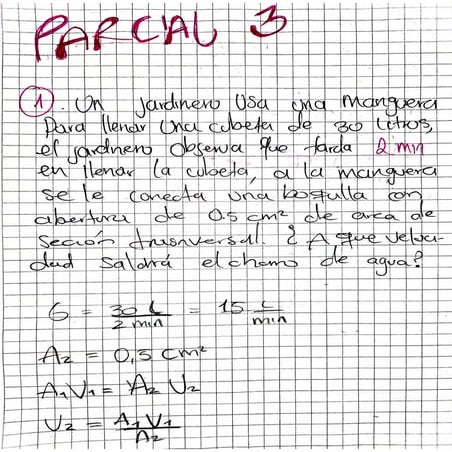 PARCIAL 3
1. Un jardinero usa una manguera
para llenar una cubeta de 30 Litros,
el jardinero observa que tarda 2 min
en llenar la cubeta, a la manguera
se le conecta una boquilla con
abertura de 0.5 cm² de area de
sección transversal. ¿A que veloci-
dad saldrá el chorro de agua?
G = 30 L / 2 min = 15 L / min
A₂ = 0,5 cm²
A₁V₁ = A₂ V₂
V₂ = A₁ V₁ / A₂